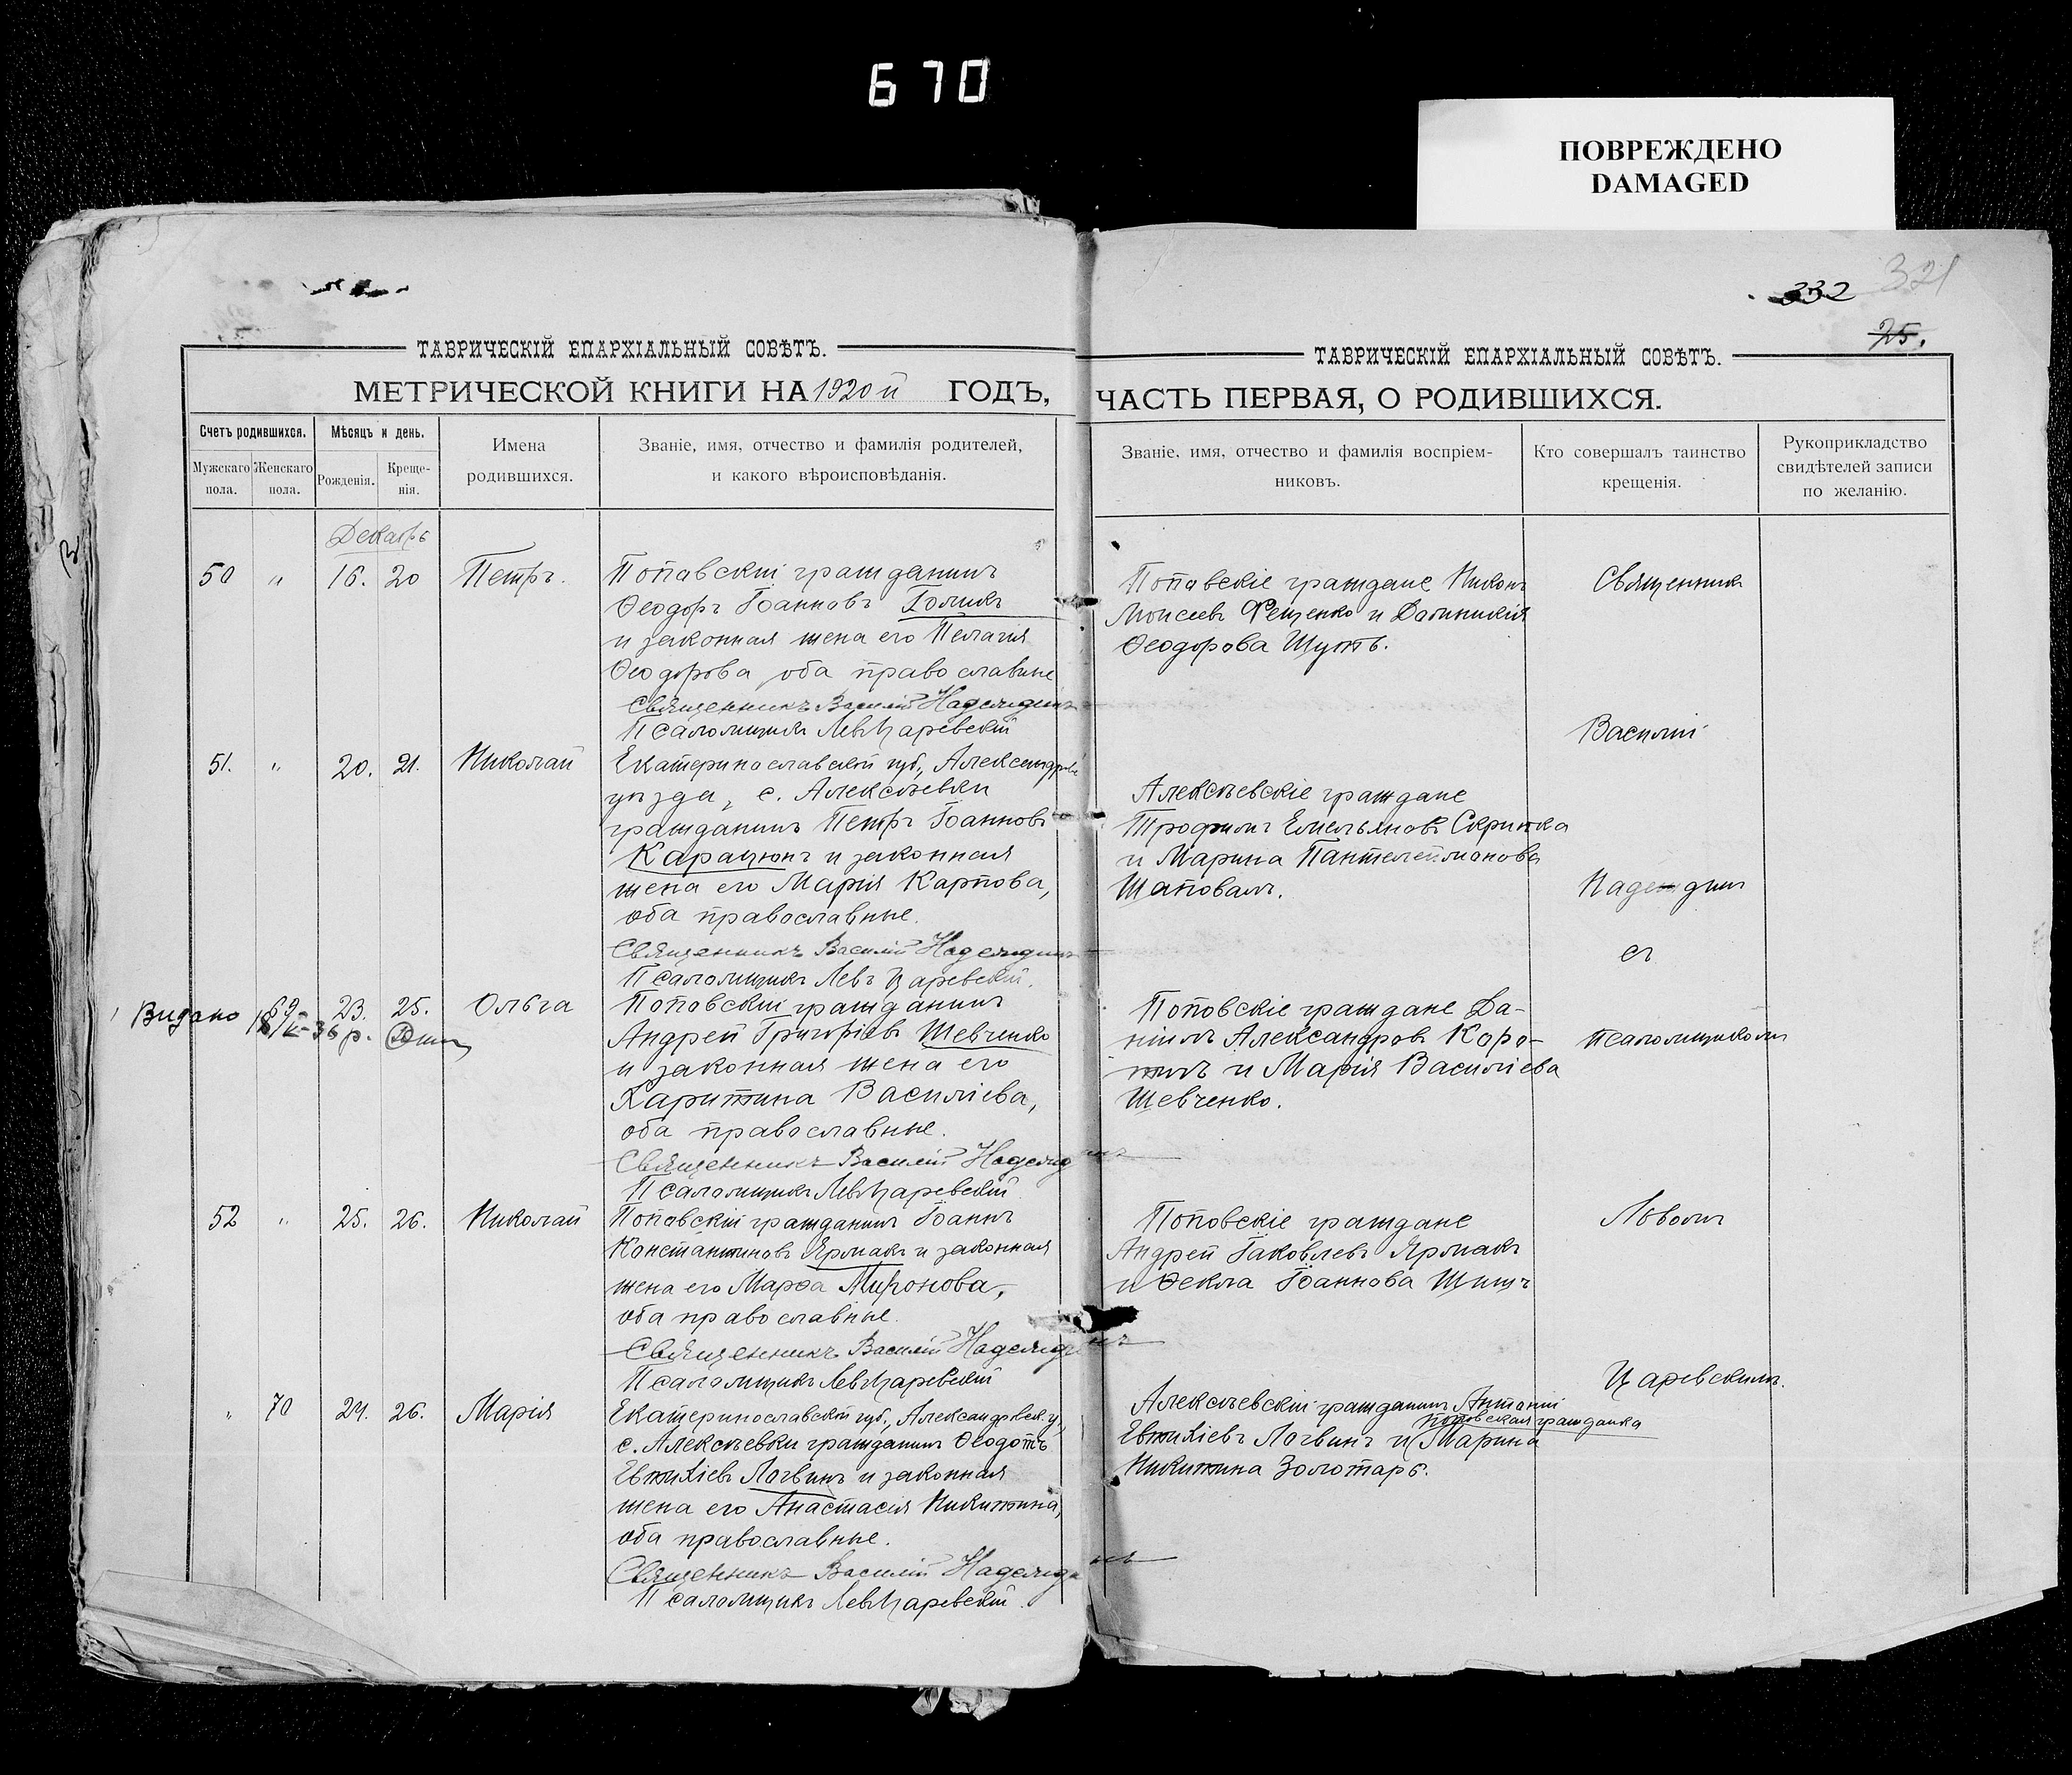 670
ПОВРЕЖДЕНО
DAMAGED
332
321
25.
ТАВРИЧЕСКІЙ ЕПАРХІАЛЬНЫЙ СОВѢТЪ.
МЕТРИЧЕСКОЙ КНИГИ НА 1920й ГОДЪ,
Счетъ родившихся.
Мужскаго пола.
Женскаго пола.
Мѣсяцъ и день.
Рожденія.
Креще-
нія.
Имена
родившихся.
Званіе, имя, отчество и фамилія родителей,
и какого вѣроисповѣданія.
Декабрь
50 " 16. 20 Петръ.
Поповскій гражданинъ
Ѳеодоръ Іоанновъ Голикъ
и законная жена его Пелагія
Ѳеодорова оба православные
Священникъ Василій Надеждинъ
Псаломщикъ Левъ Царевскій
51. " 20. 21. Николай
Екатеринославской губ., Александров
уѣзда, с. Алексѣевки
гражданинъ Петръ Іоанновъ
Карацюпъ и законная
жена его Марія Карпова,
оба православные.
Священникъ Василій Надеждинъ
Псаломщикъ Левъ Царевскій.
Видано
69 23. 25. Ольга
36 р.
Поповскій гражданинъ
Андрей Григоріевъ Шевченко
и законная жена его
Харитина Василіева,
оба православные.
Священникъ Василій Надеждинъ
Псаломщикъ Левъ Царевскій
52 " 25. 26. Николай
Поповскій гражданинъ Іоаннъ
Константиновъ Ярмакъ и законная
жена его Марѳа Миронова,
оба православные.
Священникъ Василій Надеждинъ
Псаломщикъ Левъ Царевскій
" 70 24. 26. Марія
Екатеринославской губ., Александровск. у.,
с. Алексѣевки гражданинъ Ѳеодотъ
Евтихіевъ Логвинъ и законная
жена его Анастасія Никитина,
оба православные.
Священникъ Василій Надеждинъ
Псаломщикъ Левъ Царевскій.
ТАВРИЧЕСКІЙ ЕПАРХІАЛЬНЫЙ СОВѢТЪ.
ЧАСТЬ ПЕРВАЯ, О РОДИВШИХСЯ.
Званіе, имя, отчество и фамилія воспріем-
никовъ.
Кто совершалъ таинство
крещенія.
Рукоприкладство
свидѣтелей записи
по желанію.
Поповскіе граждане Никонъ
Моисеевъ Фещенко и Домникія
Ѳеодорова Шутъ.
Алексѣевскіе граждане
Трофимъ Емельяновъ Скрипка
и Марина Пантелеймонова
Шаповалъ.
Поповскіе граждане Да-
ніилъ Александровъ Коро-
тилъ и Марія Василіева
Шевченко.
Поповскіе граждане
Андрей Іаковлевъ Ярмакъ
и Ѳекла Іоаннова
Алексѣевскій гражданинъ Антоній
поповская гражданка
Евтихіевъ Логвинъ и Марина
Никитина Золотарь.
Священникъ
Василій
Надеждинъ
съ
псаломщикомъ
Львомъ
Царевскимъ.